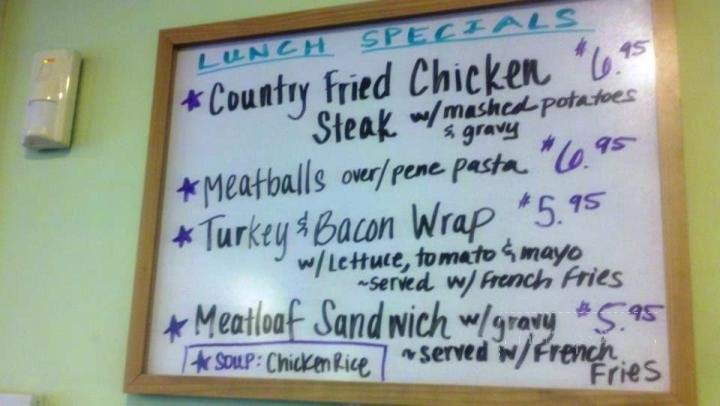 LUNCH SPECIALS
★ Country Fried Chicken $6.95
Steak w/mashed potatoes
& gravy
★ Meatballs over/pene pasta $6.95
★ Turkey & Bacon Wrap $5.95
w/Lettuce, tomato & mayo
~served w/French Fries
★ Meatloaf Sandwich w/gravy $5.95
★ SOUP: Chicken Rice ~served w/French
Fries